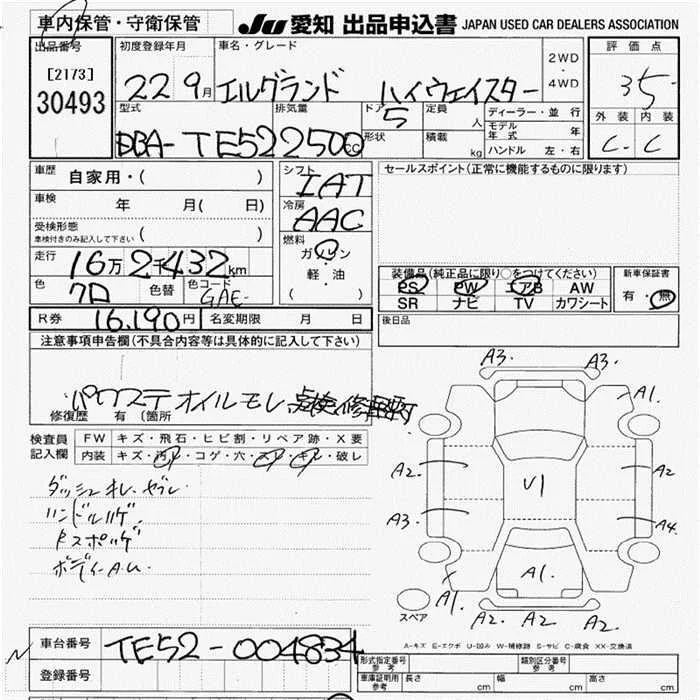 車内保管・守衛保管
JU 愛知 出品申込書 JAPAN USED CAR DEALERS ASSOCIATION
出品番号
[2173]
30493
初度登録年月
22 9月
車名・グレード
エルグランド ハイウェイスター
2WD
・
4WD
評価点
35
外装 内装
C- C
型式
DBA-TE52
排気量
2500cc
ドア
5
形状
定員
人
積載
kg
ディーラー・並行
モデル年式 年
ハンドル 左・右
車歴 自家用・( )
車検 年 月( 日)
受検形態
車検付きのみ記入して下さい ( )
走行 16万2千432km
色 クロ 色替 色コード GAE-
シフト
IAT
冷房
AAC
燃料
ガソリン
軽・油
( )
セールスポイント(正常に機能するものに限ります)
装備品(純正品に限り○をつけてください)
PS PW エアB AW
SR ナビ TV カワシート
新車保証書
有・無
R券 16,190円 名変期限 月 日
後日品
注意事項申告欄(不具合内容等は具体的に記入して下さい)
パワステオイルモレ点検修
修復歴 有 (箇所
検査員記入欄
FW キズ・飛石・ヒビ割・リペア跡・X要
内装 キズ・汚れ・コゲ・穴・スレ・キレ・破レ
ダッシュオレ.ヤブレ.
ハンドルハゲ.
ボディーA.U.
A3. A3.
A1.
A2. A2
U1
A3. A4.
A1.
A1.
A2. A2 A2.
スペア
A-キズ E-エクボ U-凹み W-補修跡 S-サビ C-腐食 XX-交換済
車台番号 TE52-004834
登録番号
形式指定番号 参考
類別区分番号 参考
車庫証明用 参考 長さ cm 幅 cm 高さ cm